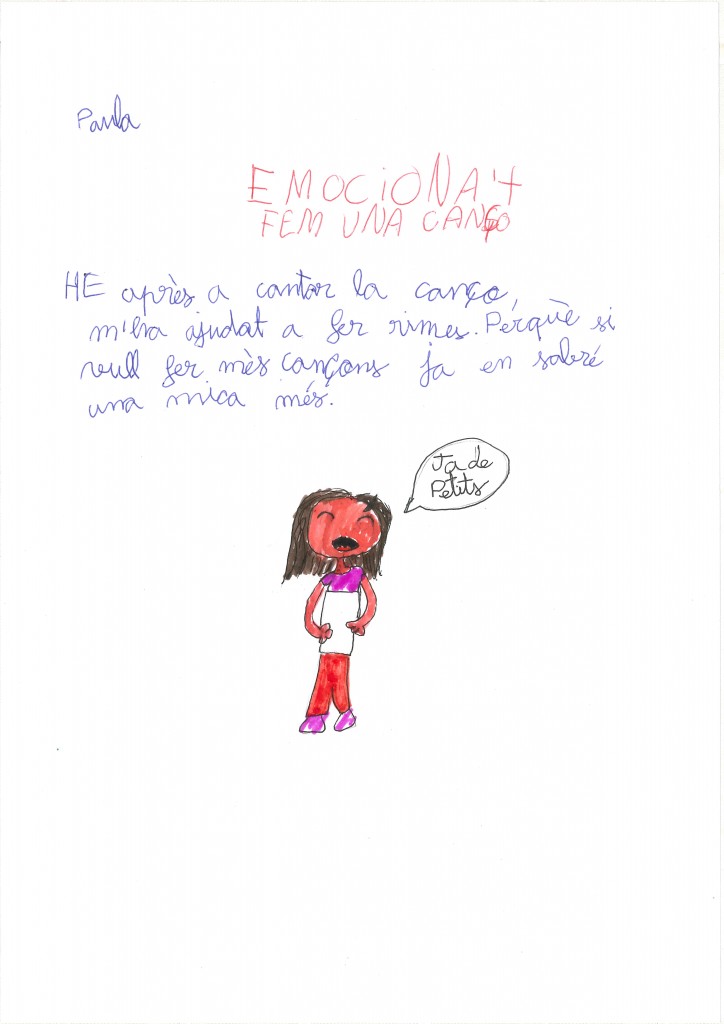 Paula
EMOCIONA't
FEM UNA CANÇO
HE après a cantar la canço,
m'ha ajudat a fer rimes. Pérquè si
vull fer mès cançons ja en sabré
una mica més.
Ja de
Petits